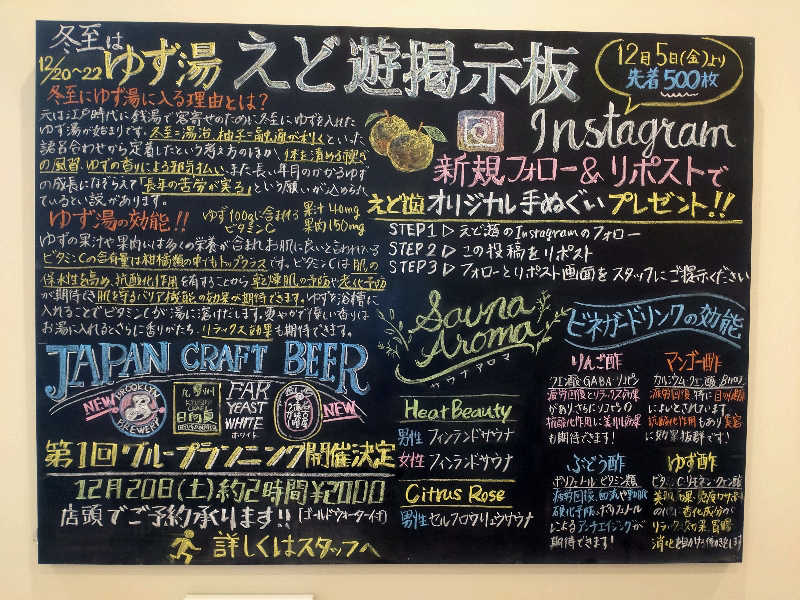 冬至は
12/20〜22 ゆず湯
えど遊掲示板
12月5日(金)より
先着500枚
冬至にゆず湯に入る理由とは?
元は江戸時代に銭湯で客寄せのために冬至にゆずを入れた
ゆず湯が始まりです。冬至=湯治、柚子=融通が利くといった
語呂合わせから定着したという考え方のほか、体を清める禊ぎ
の風習、ゆずの香りによる邪気払い、また長い年月のかかるゆず
の成長になぞらえて「長年の苦労が実る」という願いが込められ
ているという説があります。
ゆず湯の効能!!
ゆず100gに含まれる
ビタミンC
果汁40mg
果肉150mg
ゆずの果汁や果肉には多くの栄養が含まれお肌に良いと言われている
ビタミンCの含有量は柑橘類の中でもトップクラスです。ビタミンCは肌の
保水性を高め、抗酸化作用を有することから乾燥肌の予防や老化予防
が期待でき肌を守るバリア機能の効果が期待できます。ゆずを浴槽に
入れることでビタミンCが湯に溶けだします。爽やかで優しい香りは
お湯に入れるとさらに香りがたち、リラックス効果も期待できます。
Instagram
新規フォロー&リポストで
えど遊オリジナル手ぬぐいプレゼント!!
STEP1 ▷ えど遊のInstagramのフォロー
STEP2 ▷ この投稿をリポスト
STEP3 ▷ フォローとリポスト画面をスタッフにご提示ください
JAPAN CRAFT BEER
NEW
BROOKLYN
BREWERY
九州
CRAFT
日向夏
FAR
YEAST
WHITE
ホワイト
NEW
第1回グループランニング開催決定
12月20日(土)約2時間¥2000
店頭でご予約承ります!!(ゴールドウォーター付)
詳しくはスタッフへ
Sauna
Aroma
サウナアロマ
Heat Beauty
男性 フィンランドサウナ
女性 フィンランドサウナ
Citrus Rose
男性 セルフロウリュウサウナ
ビネガードリンクの効能
りんご酢
クエン酸 GABA リコピン
疲労回復とリラックス効果
があり
抗酸化作用に美肌効果
も期待できます!
マンゴー酢
カルシウム クエン酸
疲労回復、特に目の疲れ
によいとされています。
抗酸化作用もあり美容
に効果抜群です!
ぶどう酢
ポリフェノール ビタミン類
疲労回復、
硬化予防にポリフェノール
によるアンチエイジングが
期待できます!
ゆず酢
ビタミンC リモネン クエン酸
リラックス効果、胃腸